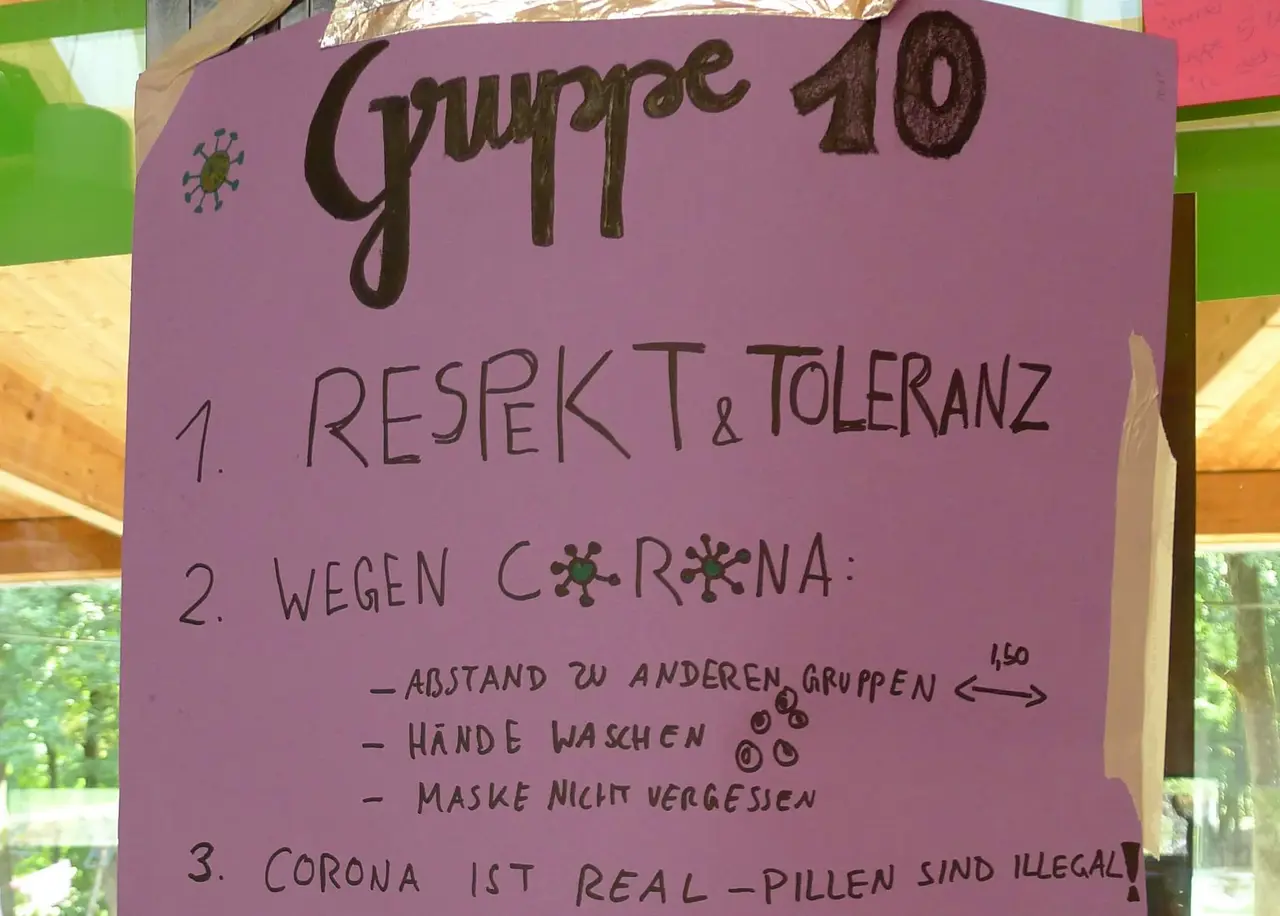 Gruppe 10
1. RESPEKT & TOLERANZ
2. WEGEN CORONA:
– ABSTAND ZU ANDEREN GRUPPEN 1,50
– HÄNDE WASCHEN
– MASKE NICHT VERGESSEN
3. CORONA IST REAL – PILLEN SIND ILLEGAL!